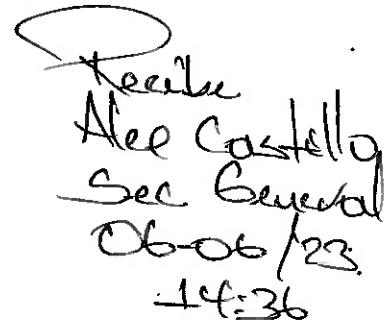 Recibe
Alee Castello
Sec General
06-06/23.
14:36